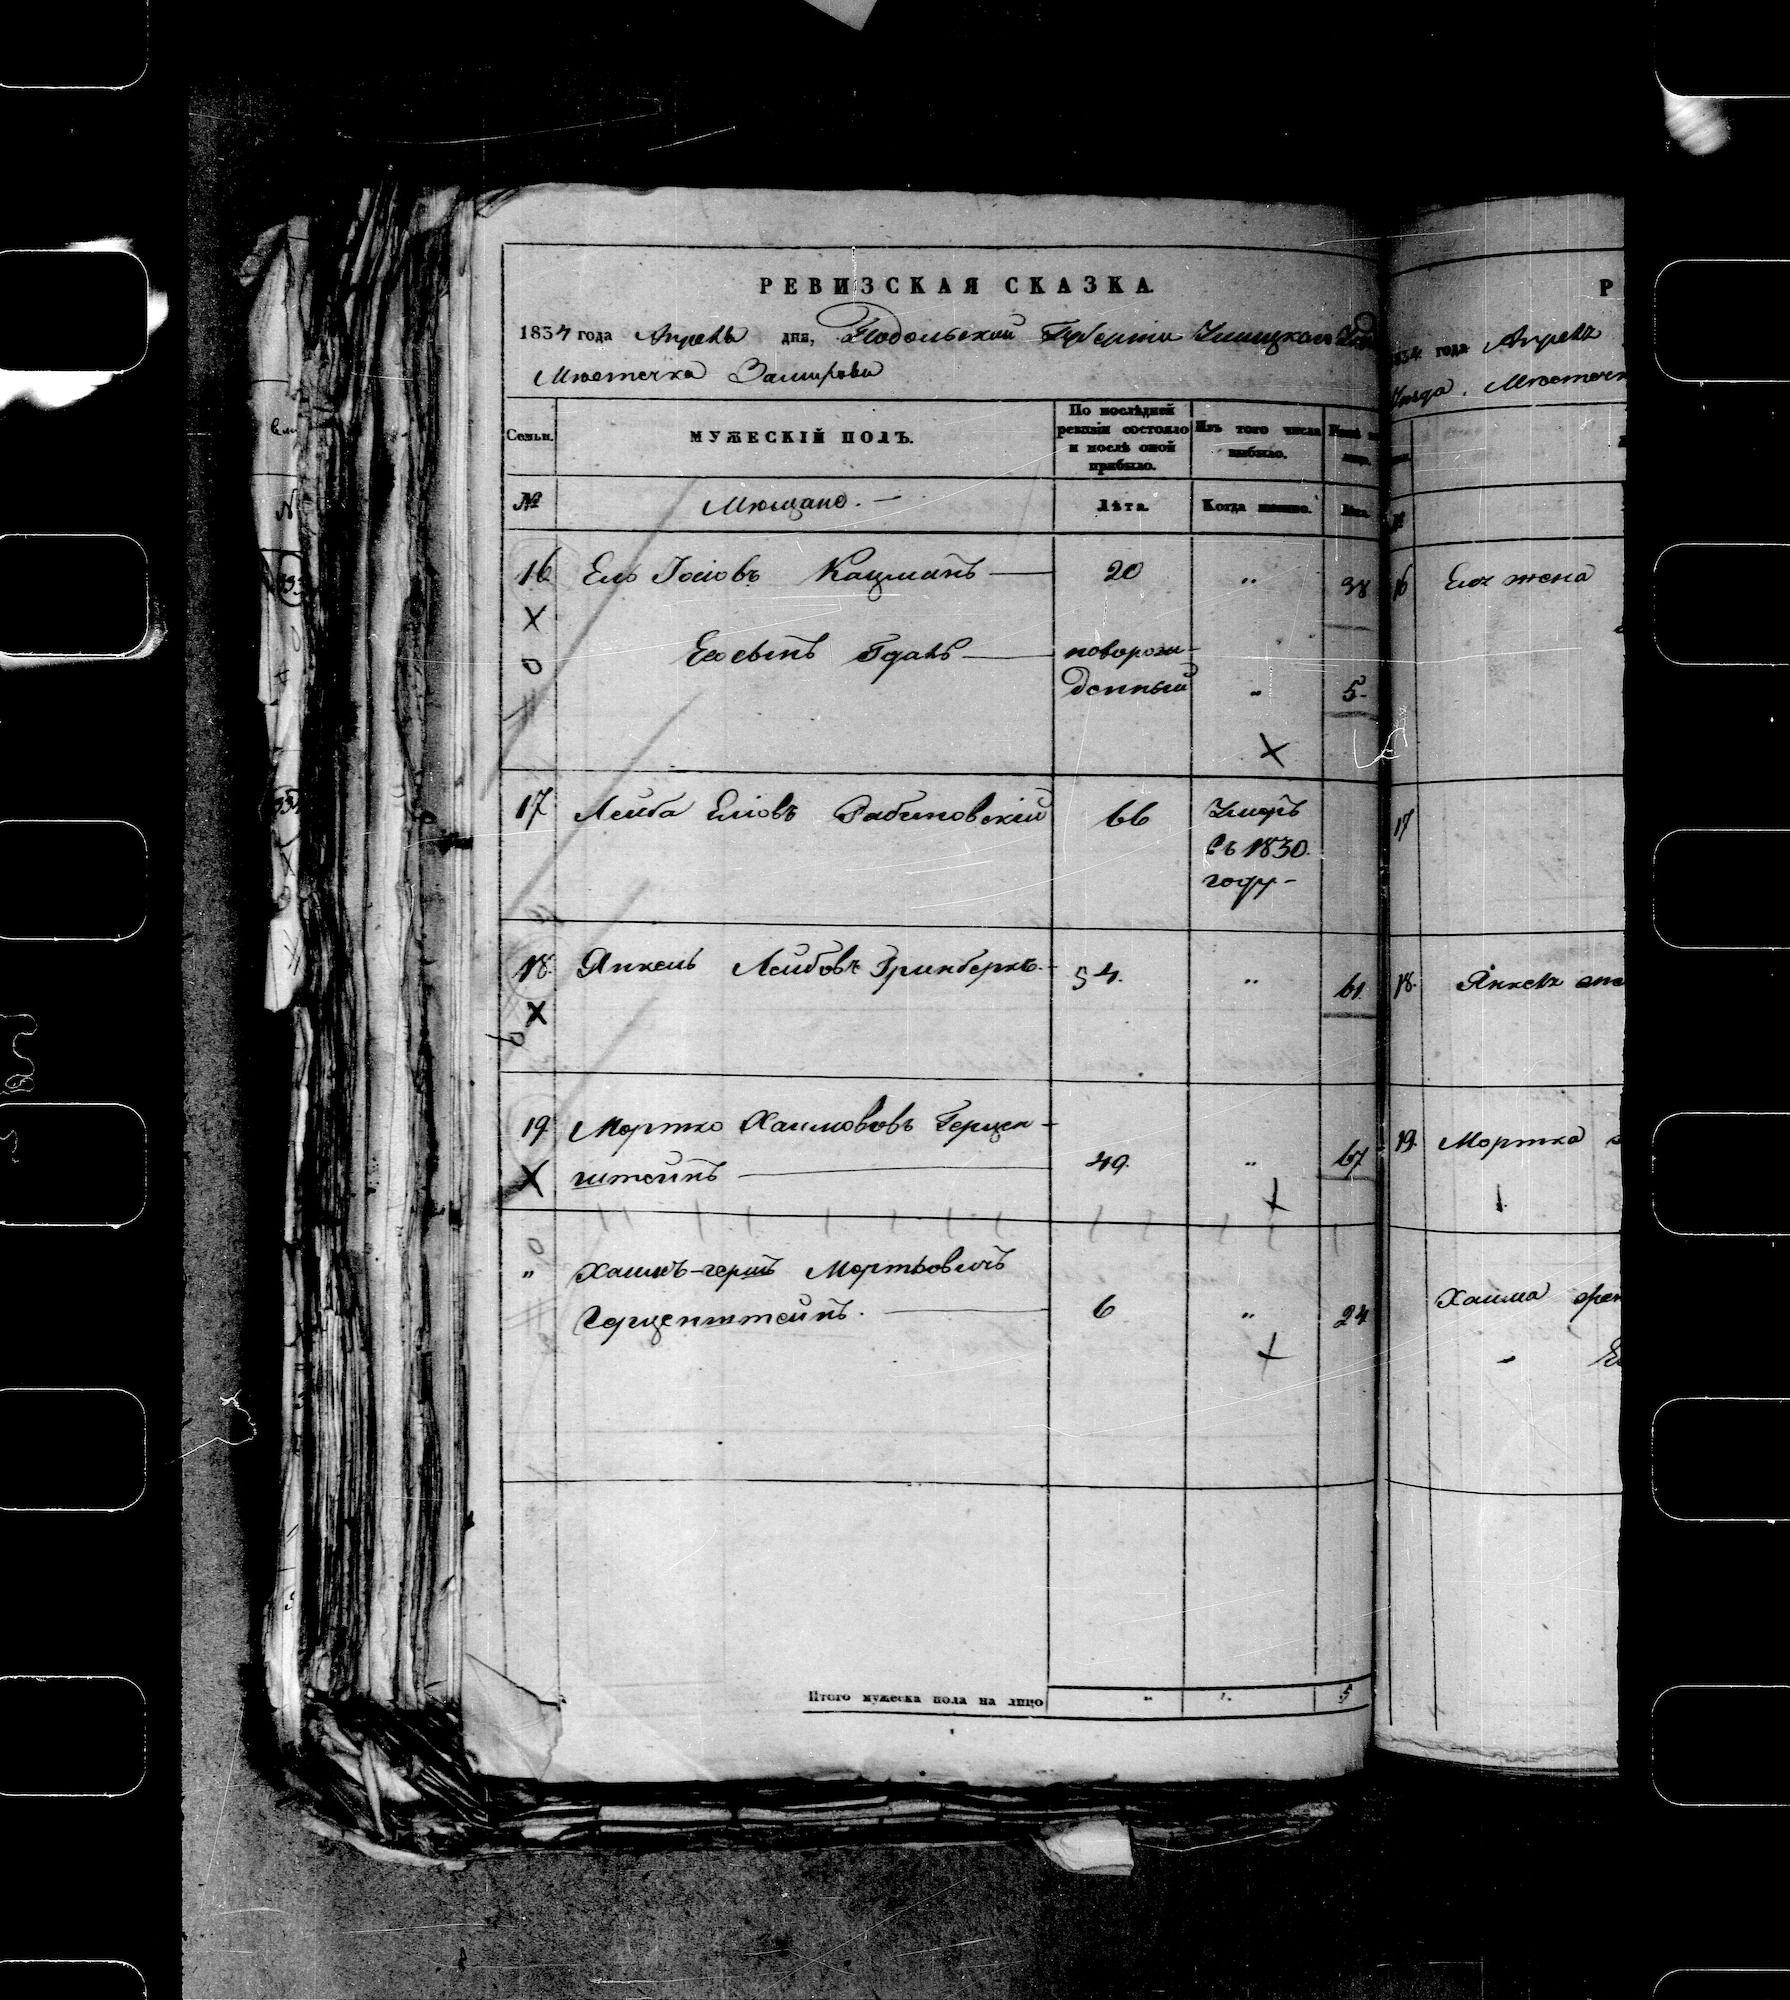 РЕВИЗСКАЯ СКАЗКА
1834 года Апрель дня, Подольской Губернiи Ушицкаго
Мѣстечка
Семьи.
МУЖЕСКIЙ ПОЛЪ.
По послѣдней ревизiи состояло и послѣ оной прибыло.
Изъ того числа выбыло.
№
Мѣщане. —
Лѣта.
Когда именно.
Лѣта.
16 Ель Iосiовъ Кацманъ — 20 „ 38
Его сынъ — новорож-
денный „ 5
17 Лейба Елiовъ Рабиновскiй 66 Умеръ
въ 1830.
году -
18. Янкель Лейбовъ Гринберкъ. - 54. „ 61.
19 Мортко Хаимововъ Герцен-
штейнъ — 49. „ 67
„ Хаимъ-герш Мортковичъ
Герценштейнъ. — 6 „ 24
Итого мужеска пола на лицо „ 1. 5
Р
1834 года Апреля
Уѣзда. Мѣстечк
16 Его жена
17
18. Янкеля
19. Мортка
Хаима